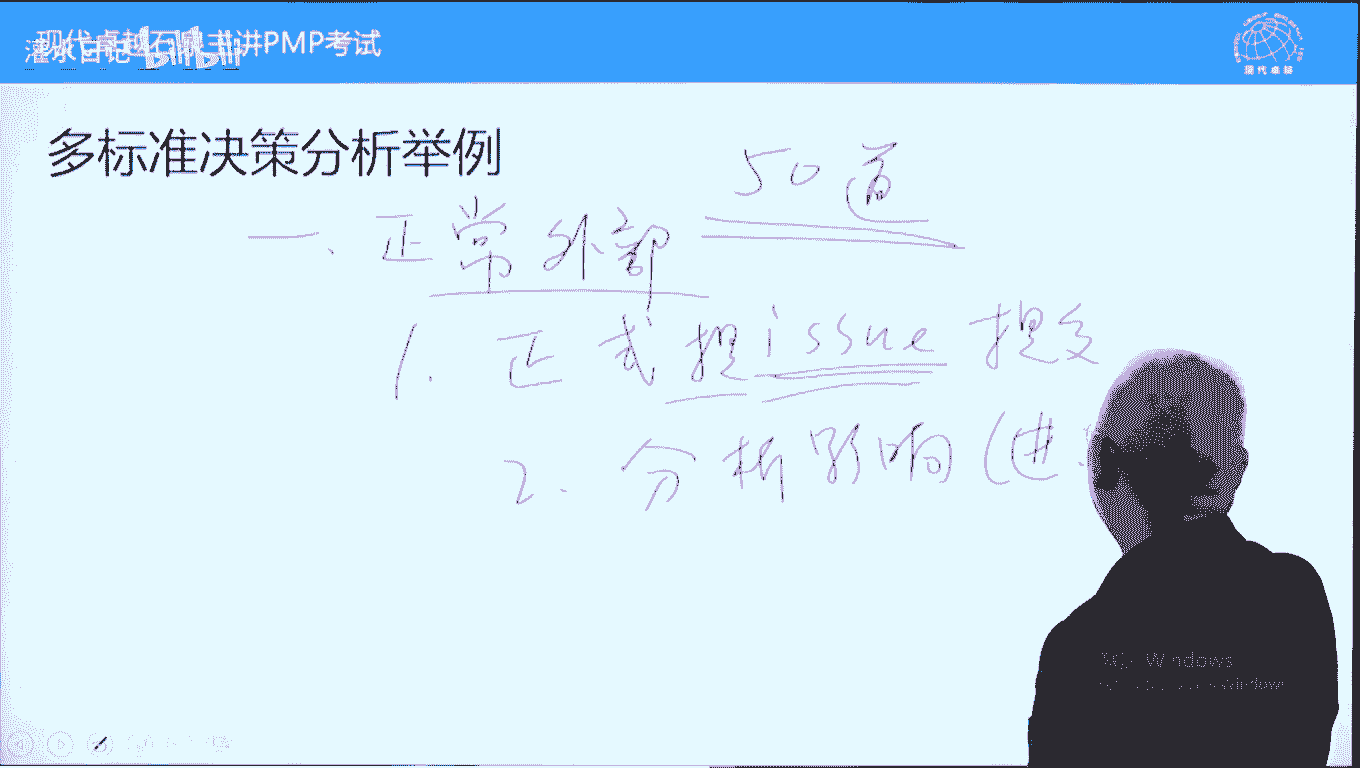 现代卓越石泉主讲PMP考试
灌水日记 bilibili
现代卓越
多标准决策分析举例
50道
一、正常外部
1. 正式提issue 提交
2. 分析影响(进
Windows
Windows